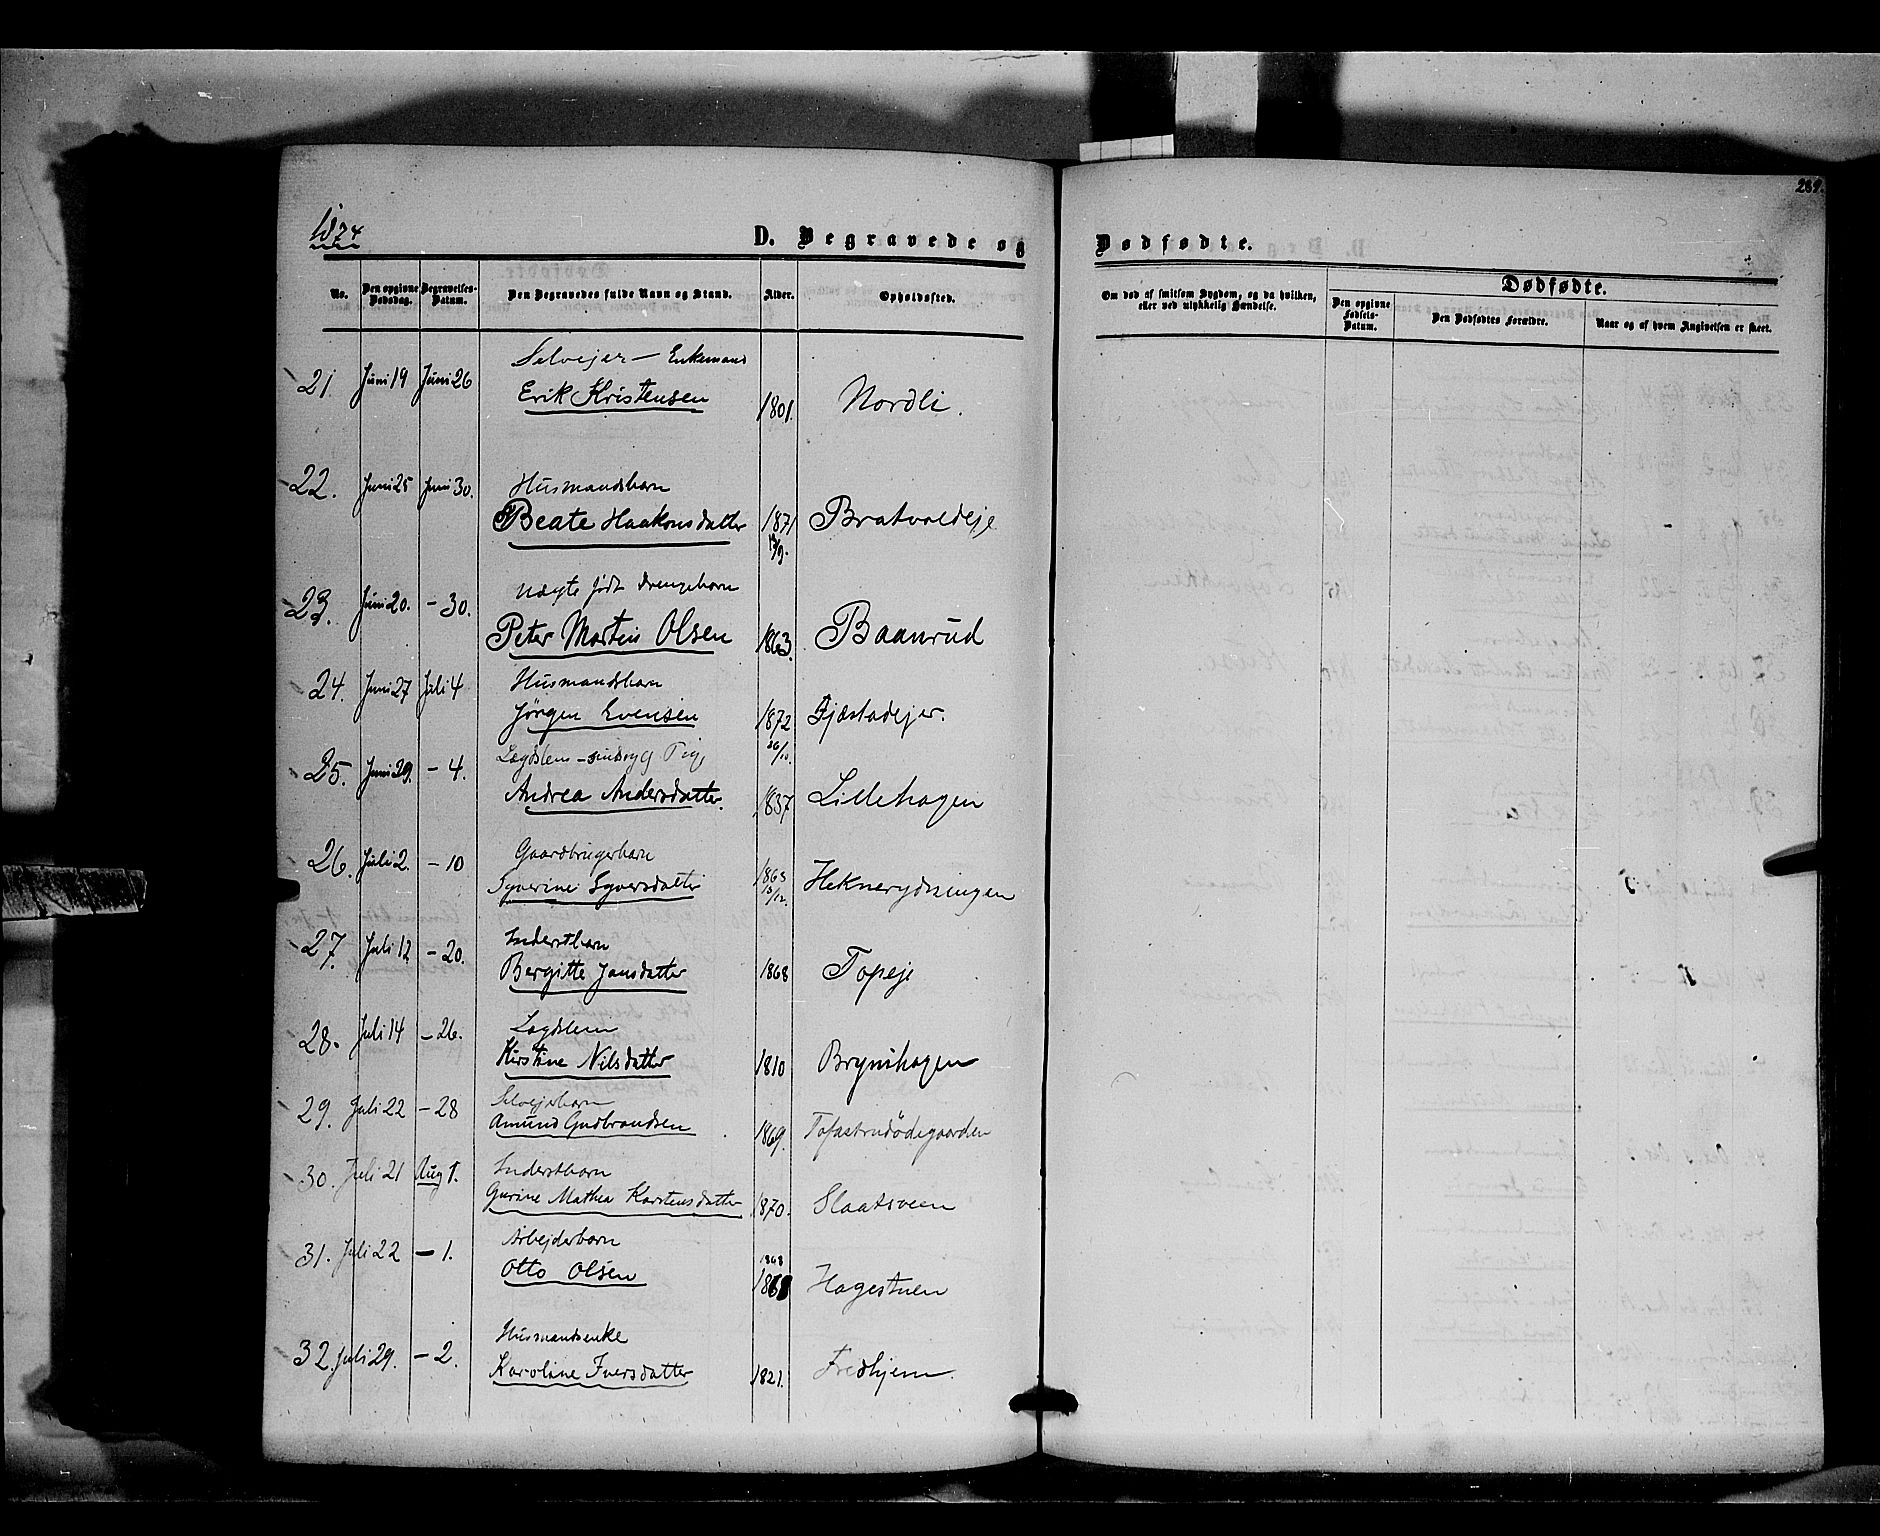 289.
1874
D. Begravede og Dødfødte.
No.
Den opgivne Dødsdag.
Begravelses-Datum.
Den Begravedes fulde Navn og Stand.
Alder.
Opholdssted.
Om død af smitsom Sygdom, og da hvilken, eller ved ulykkelig Hændelse.
Dødfødte.
Den opgivne Fødsels-Datum.
Den Dødfødtes Forældre.
Naar og af hvem Angivelsen er skeet.
Selvejer - Enkemand
21 Juni 19 Juni 26 Erik Kristensen 1801. Nordli.
22. Juni 25 Juni 30. Husmandsbarn
Beate Haakonsdatter 1871 Bratvoldeje
Uægte født Drengebarn
23. Juni 20. - 30. Peter Martin Olsen 1863. Baanrud
24. Juni 27 Juli 4 Husmandsbarn
Jørgen Evensen 1872 Fjæstadejer.
26/10.
25. Juni 29. - 4. Lægdslem - sindssyg Pige
Andrea Andersdatter. 1837 Lillehagen
26. Juli 2. - 10 Gaardbrugerbarn
Syverine Syversdatter 1863 13/12. Heknerydningen
27. Juli 12 - 20. Inderstbarn
Bergitte Jansdatter 1868 Topeje
28. Juli 14 - 26. Lægdslem
Kirstine Nilsdatter 1810 Brynihagen
29. Juli 22 - 28 Selvejerbarn
Amund Gudbrandsen 1869. Tofastrudødegaarden
30. Juli 21 Aug 1. Inderstbarn
Gurine Mathea Karstensdatter 1870. Slaatsveen
31. Juli 22 - 1. Arbejderbarn
Otto Olsen 1868 Hagestuen
32. Juli 29. - 2. Husmandsenke
Karoline Iversdatter 1821. Fredhjem.